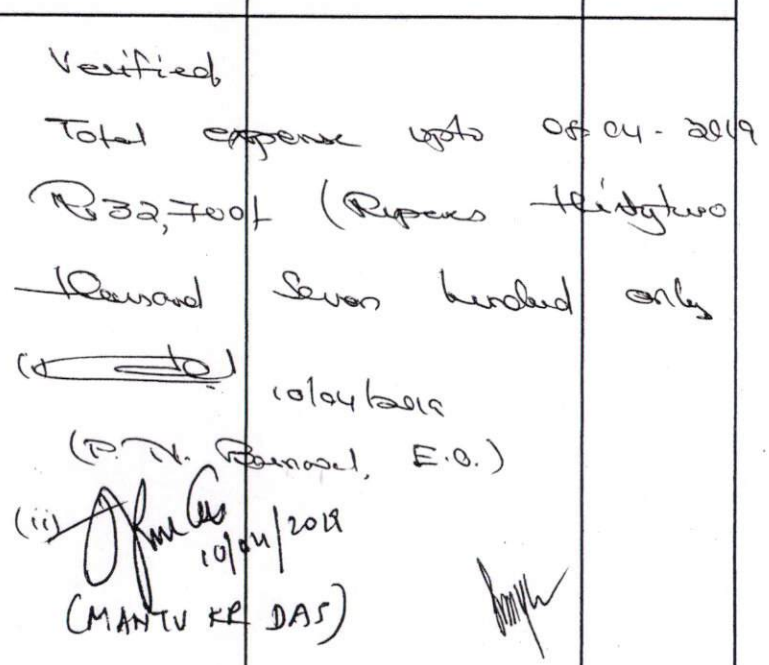 Verified
Total expense upto 08-04-2019
Rs 32,700/- (Rupees thirtytwo
thousand Seven hundred only
(i)
10/04/2019
(P. N. E.O.)
(ii)
10/04/2019
(MANTU KR DAS)